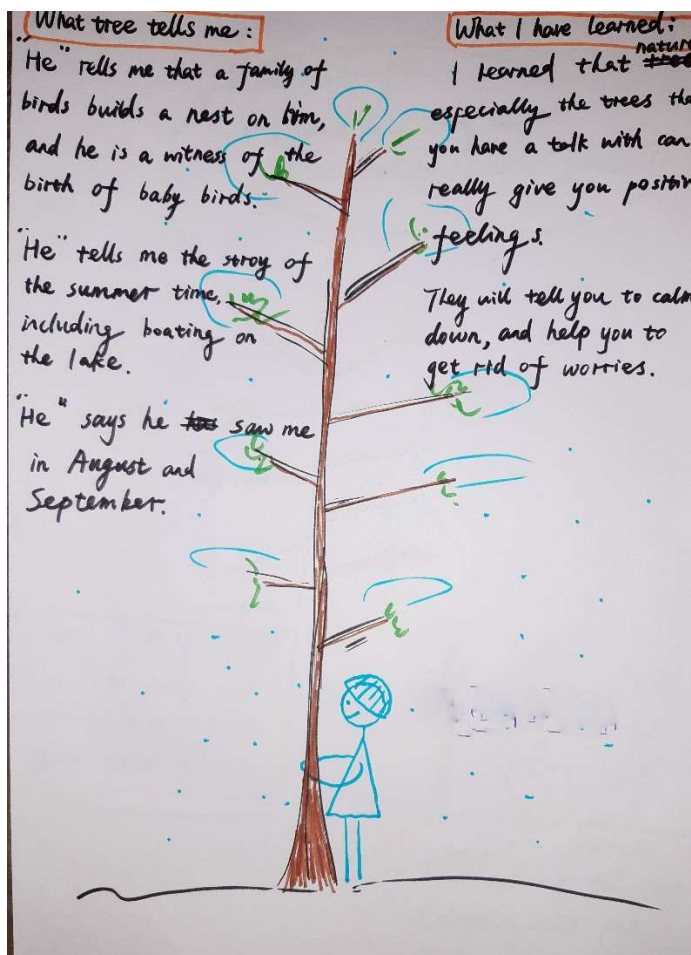 What tree tells me:
"He" tells me that a family of
birds builds a nest on him,
and he is a witness of the
birth of baby birds.
"He" tells me the stroy of
the summer time,
including boating on
the lake.
"He" says he saw me
in August and
September.
What I have learned:
nature
I learned that
especially the trees
you have a talk with can
really give you
feelings.
They will tell you to calm
down, and help you to
get rid of worries.